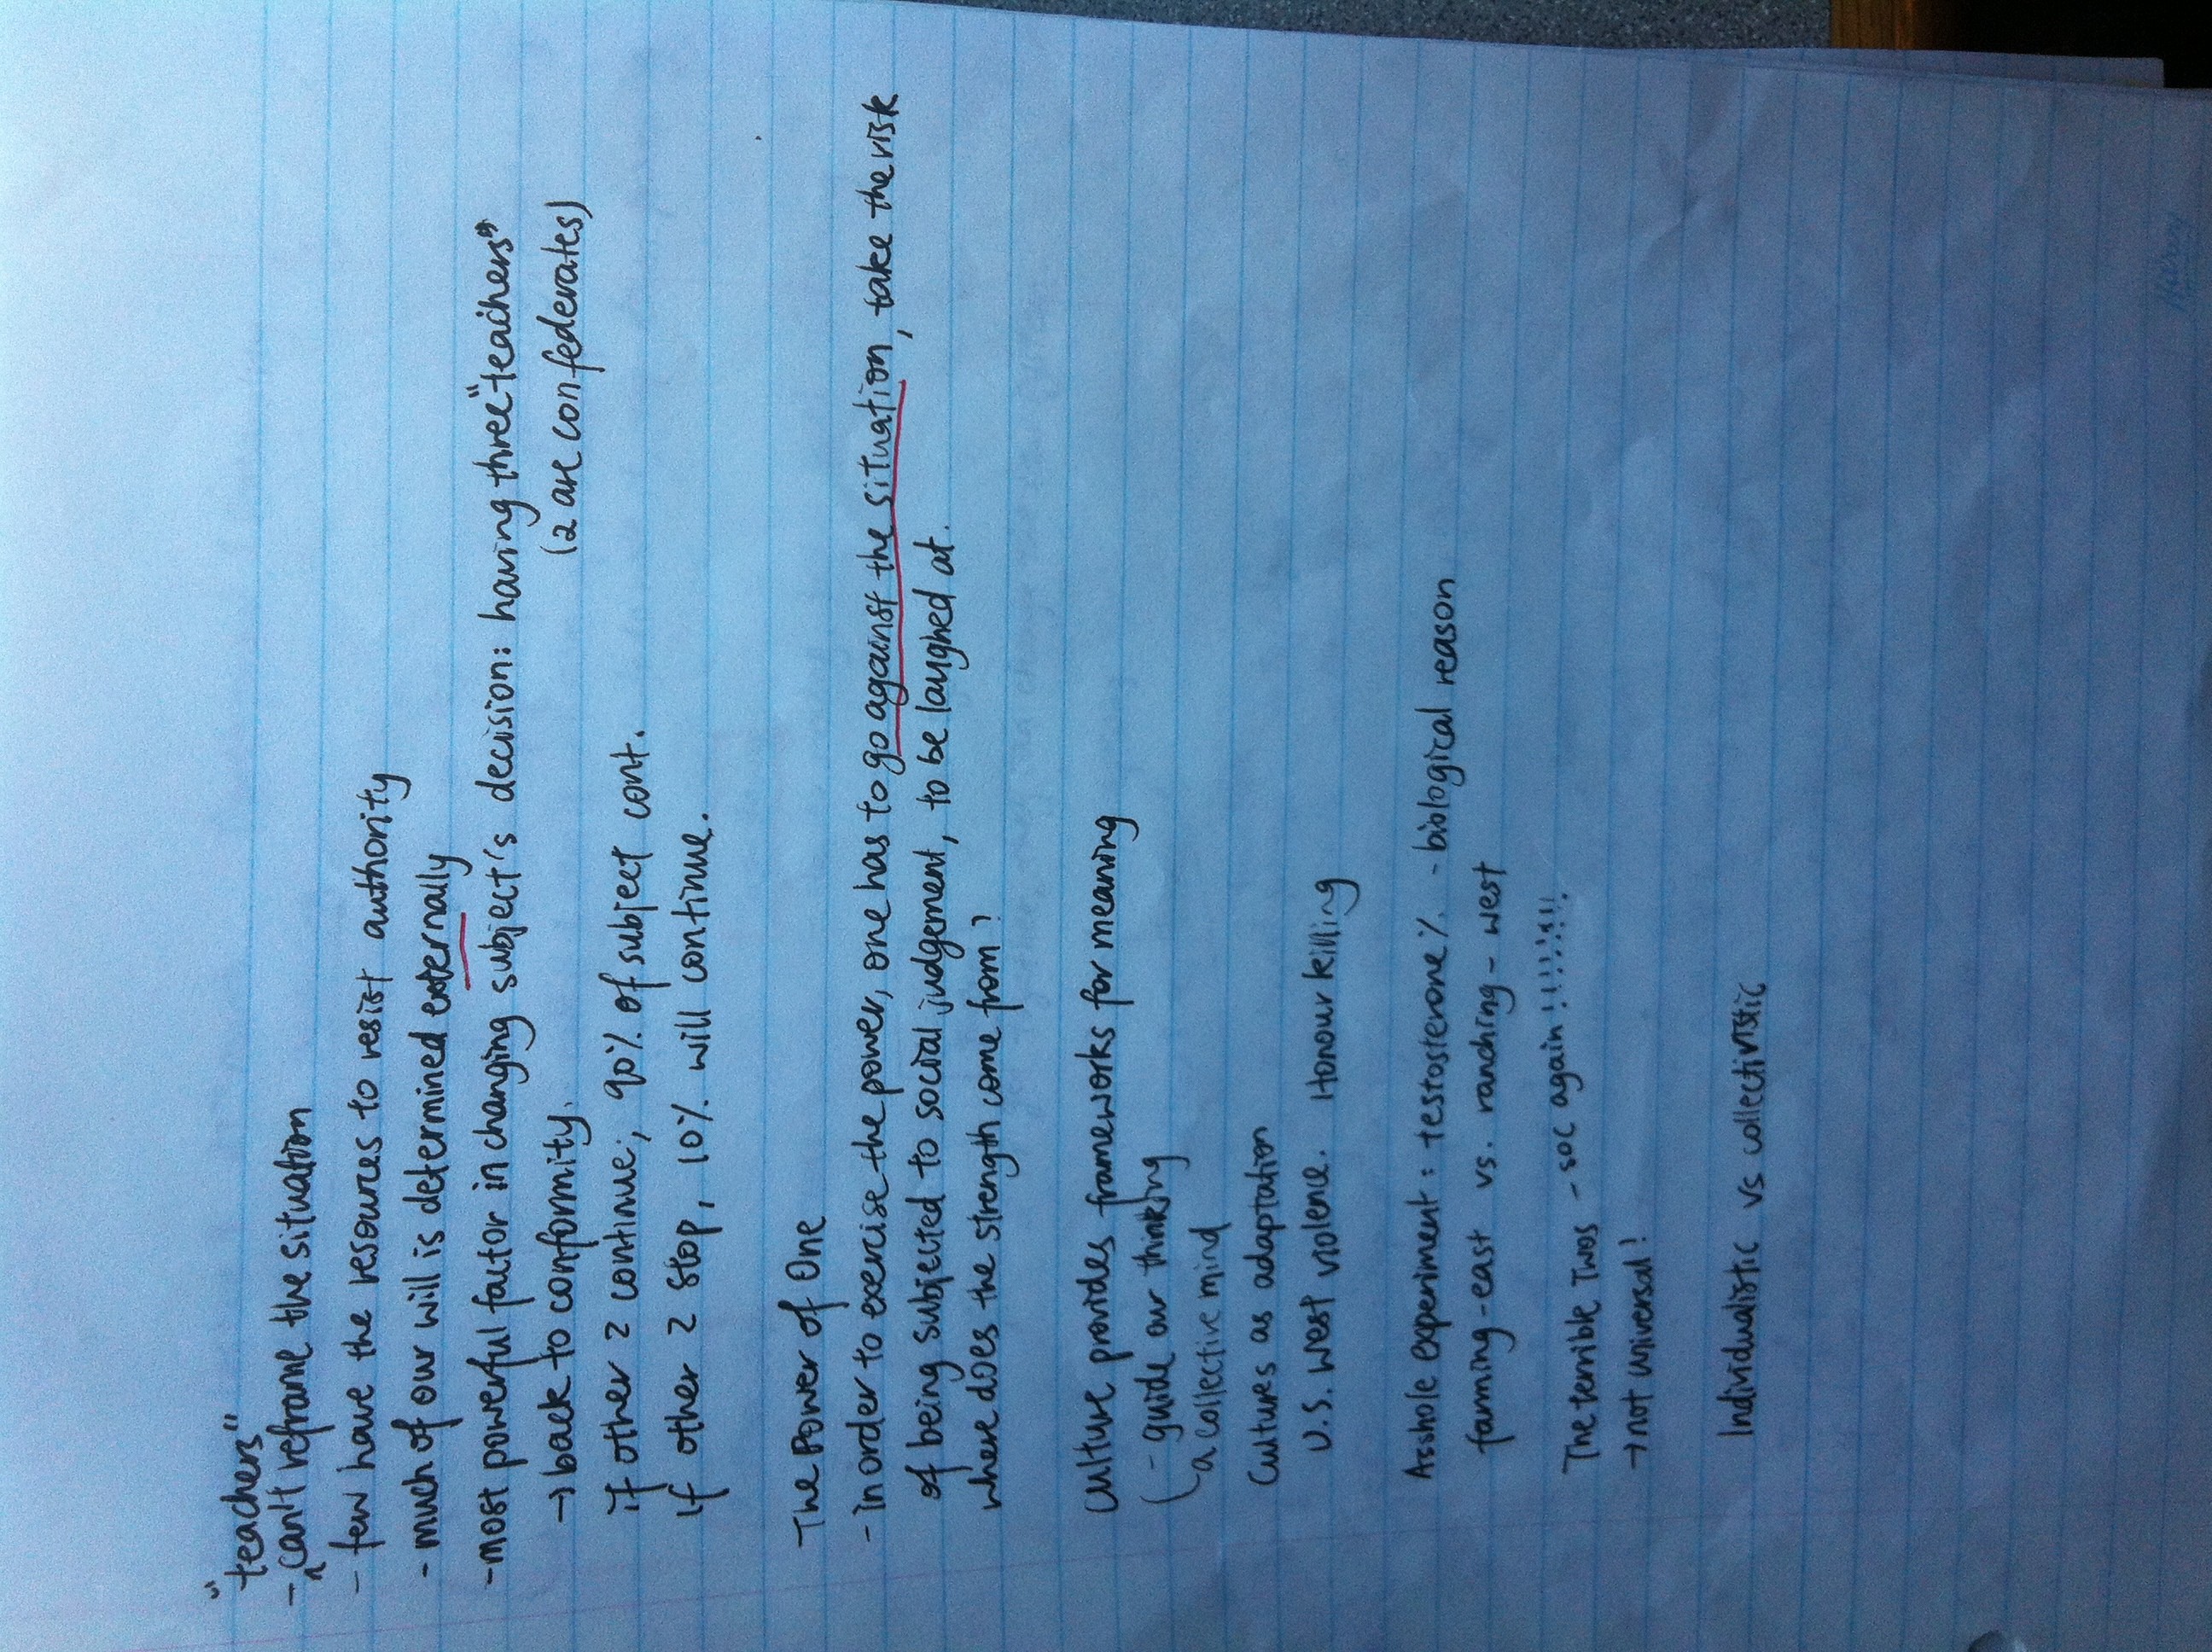 "teachers"
- ^ can't reframe the situation
- few have the resources to resist authority
- much of our will is determined externally
- most powerful factor in changing subject's decision: having three "teachers"
(2 are confederates)
→ back to conformity.
if other 2 continue; 90% of subject cont.
if other 2 stop, 10% will continue.
The Power of One
- in order to exercise the power, one has to go against the situation, take the risk
of being subjected to social judgement, to be laughed at.
where does the strength come from?
Culture provides frameworks for meaning
- guide our thinking
a collective mind
Cultures as adaptation
U.S. West violence. Honour killing
Asshole experiment: testosterone % - biological reason
farming - east vs. ranching - west
The terrible Twos - soc again !!!!!!!!
→ not universal!
Individualistic vs collectivistic